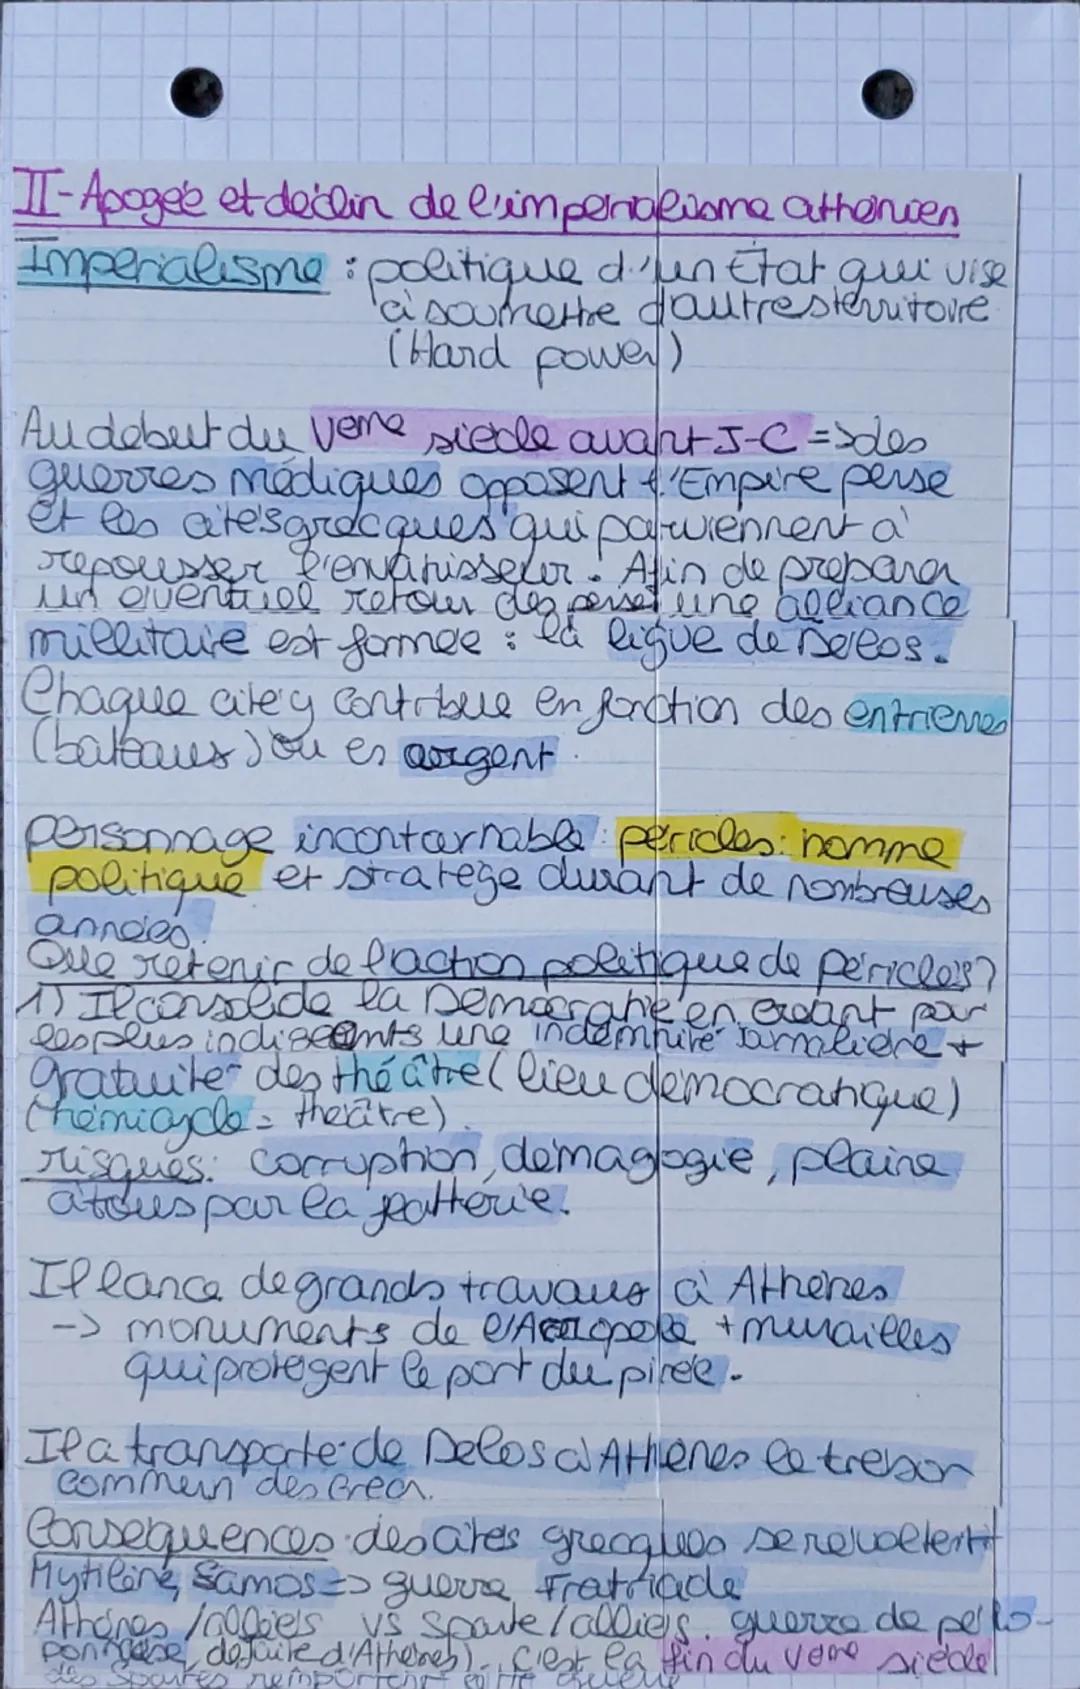 II-Apogée et déclin de l'impérialisme athénien
Impérialisme : politique d'un État qui vise
à soumettre d'autres territoire
(Hard power)
Au debut du Veme siècle avant J-C => des
guerres médiques opposent l'Empire perse
et les cités grecques qui parviennent à
repousser l'envahisseur. Afin de préparer
un éventuel retour des perses une alliance
millitaire est formée : la ligue de Délos.
Chaque cité y contribue en fonction des
(bateaux) ou en argent.
personnage incontournable : périclès : homme
politique et stratège durant de nombreuses
années.
Que retenir de l'action politique de périclès ?
1) Il consolide la Démocratie en créant pour
les plus indigeants une indemnité journalière +
gratuité des théâtre (lieu démocratique)
(hémicycle = théâtre).
risques : corruption, démagogie, plaire
à tous par la flatterie.
Il lance de grands travaux à Athènes
-> monuments de l'Acropole + murailles
qui protègent le port du pirée.
Il a transporté de Délos à Athènes le trésor
commun des Grecs.
Conséquences : des cités grecques se révoltent
Mytilène, Samos => guerre Fratricide
Athènes / alliés vs Sparte / alliés. guerre de pélo-
ponnèse, défaite d'Athènes). C'est la fin du Veme siècle